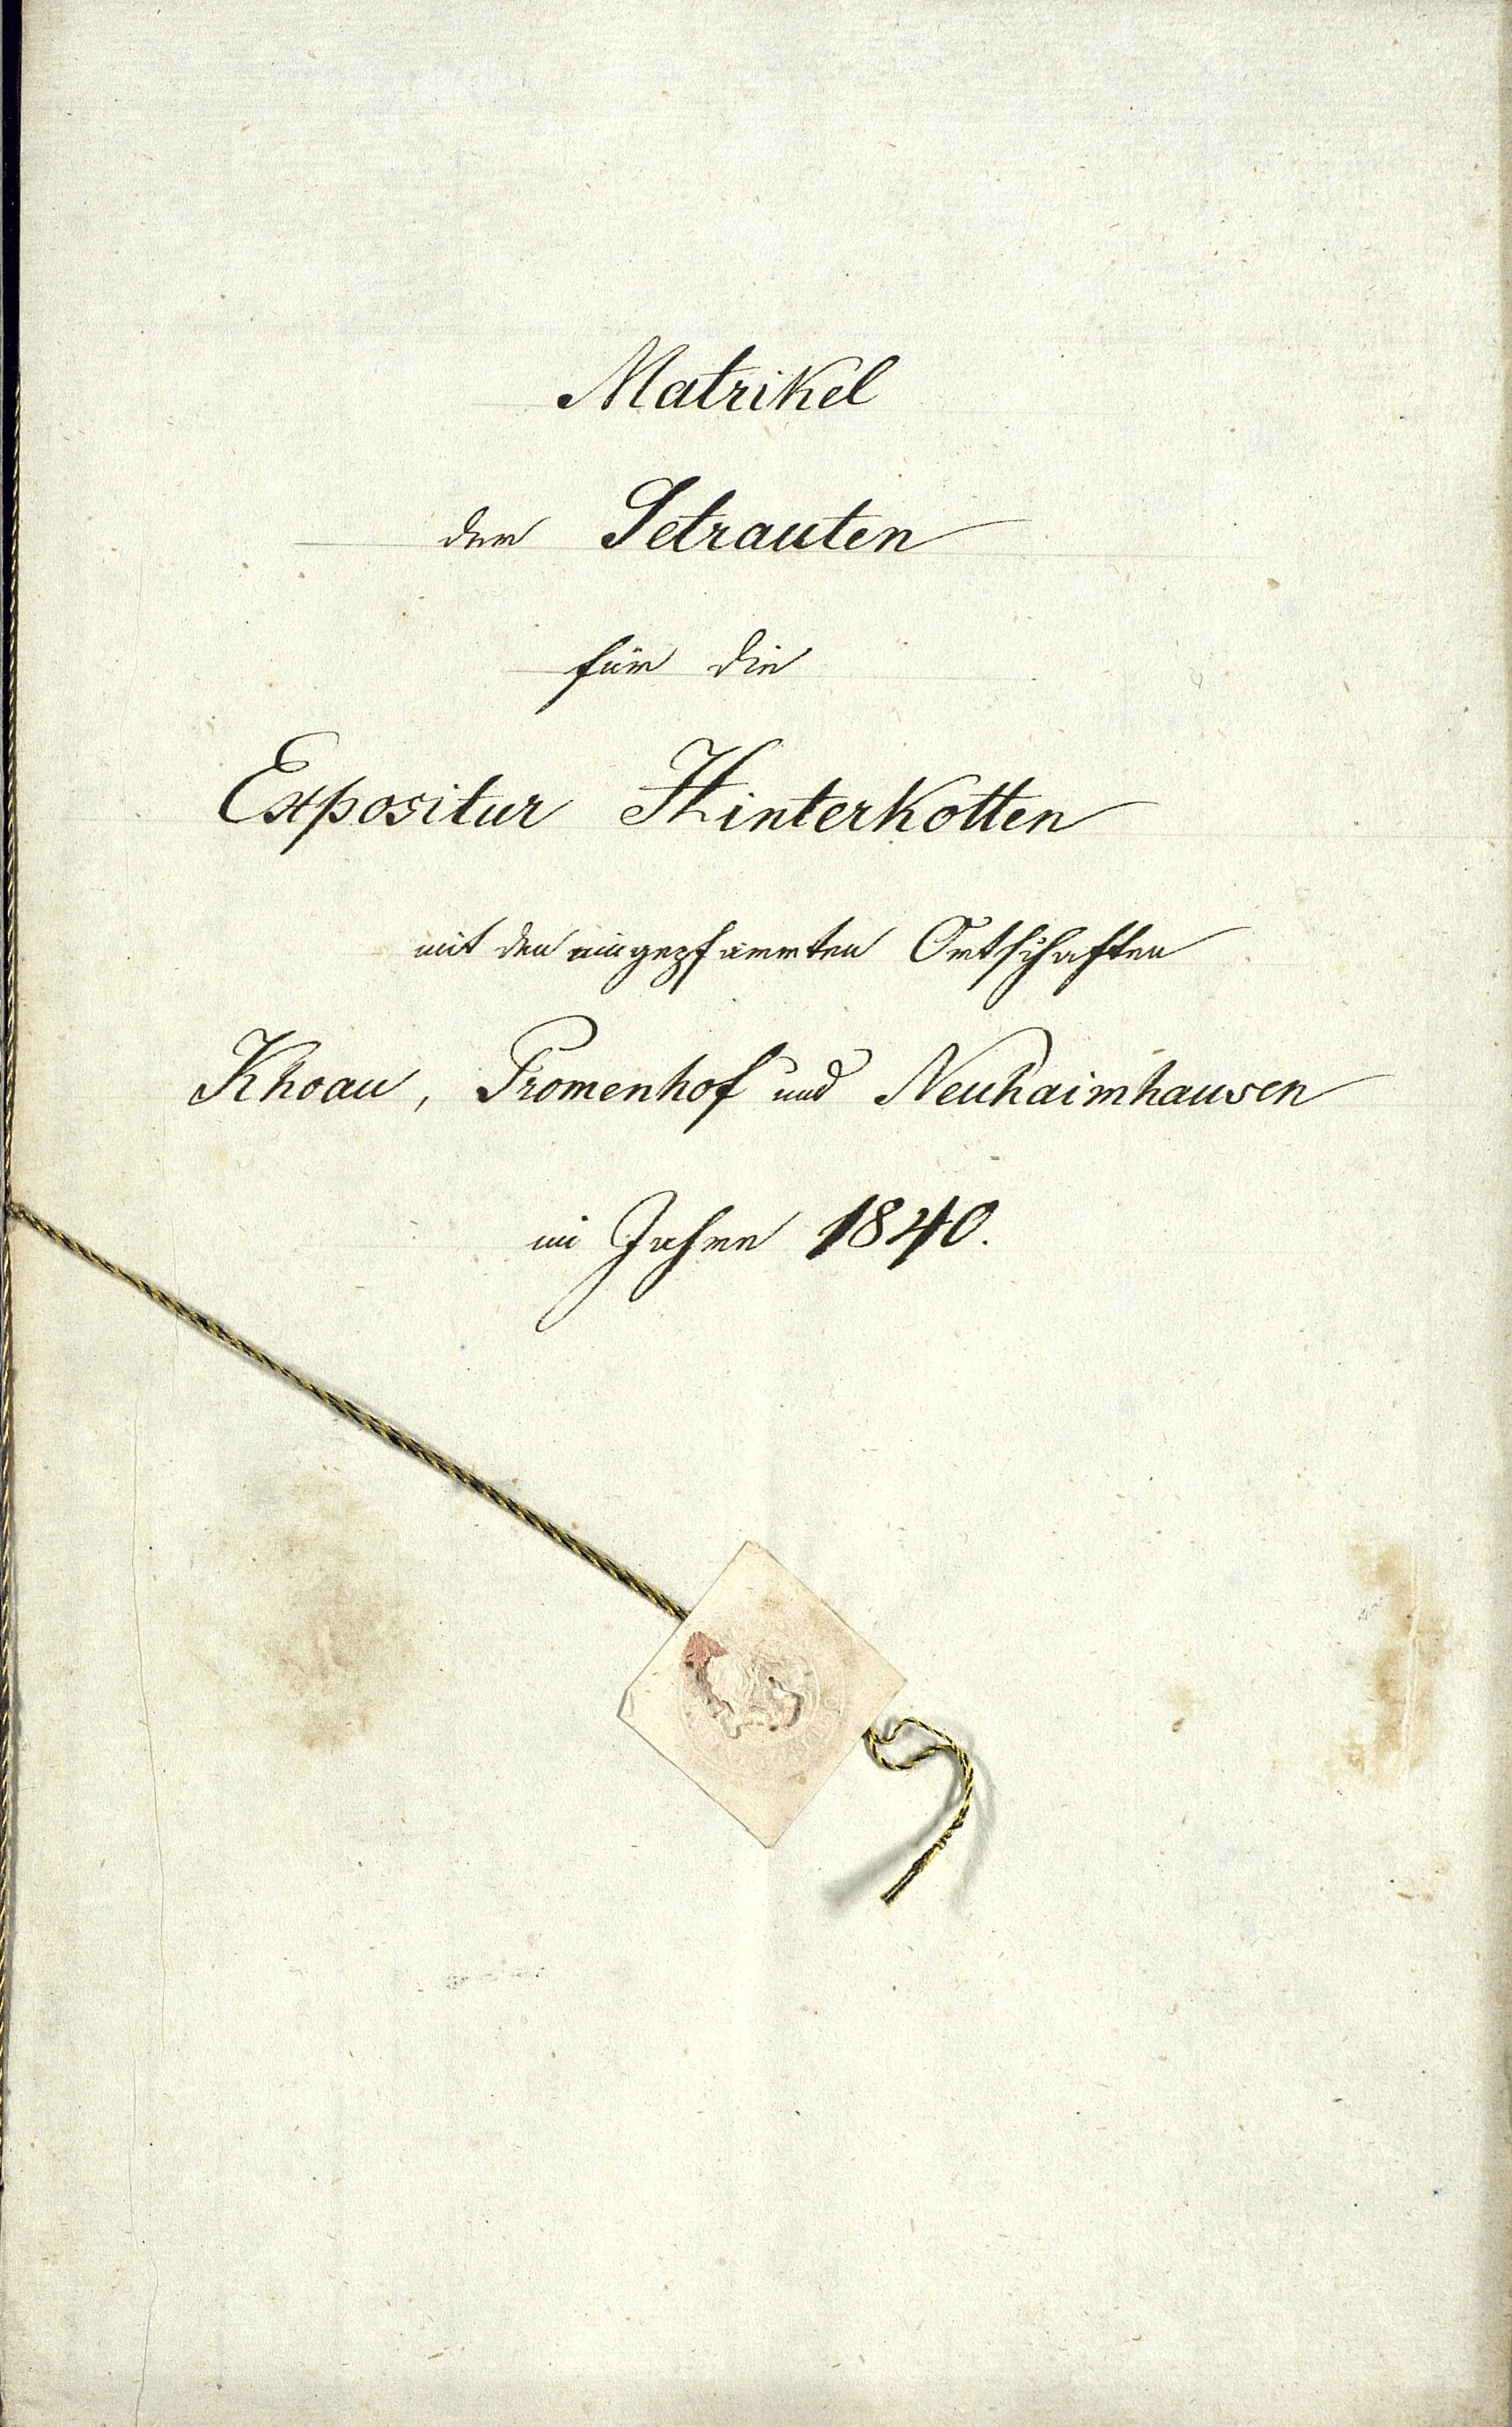 Matrikel
der Getrauten
für die
Expositur Hinterkotten
mit den eingepfarrten Ortschaften
Khoau, Promenhof und Neuhaimhausen
im Jahre 1840.